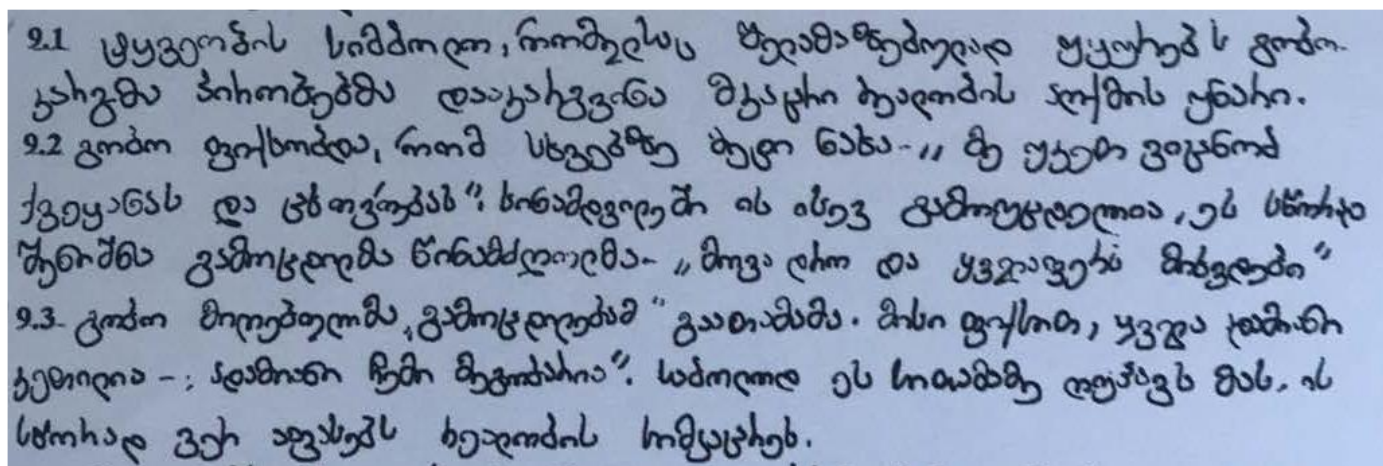 2.1 ტყვეობის სიმბოლო, რომელსაც შელამაზებულად უყურებს გოჩო.
კარგმა პირობებმა დააკარგვინა მკაცრი რეალობის აღქმის უნარი.
2.2 გოჩო ფიქრობდა, რომ სხვებზე მეტი ნახა - „ მე უკეთ ვიცნობ
ქვეყანას და ცხოვრებას". სინამდვილეში ის ისევ გამოუცდელია, ეს სწორად
შენიშნა გამოცდილმა წინამძღოლმა - „მოვა დრო და ყველაფერს მიხვდები"
2.3. გოჩო მიღებულმა „გამოცდილებამ" გაათამამა. მისი ფიქრით, ყველა ადამიანი
კეთილია -„ ადამიანი ჩემი მეგობარია". საბოლოოდ ეს სითამამე ღუპავს მას. ის
სწორად ვერ აფასებს რეალობის სიმკაცრეს.